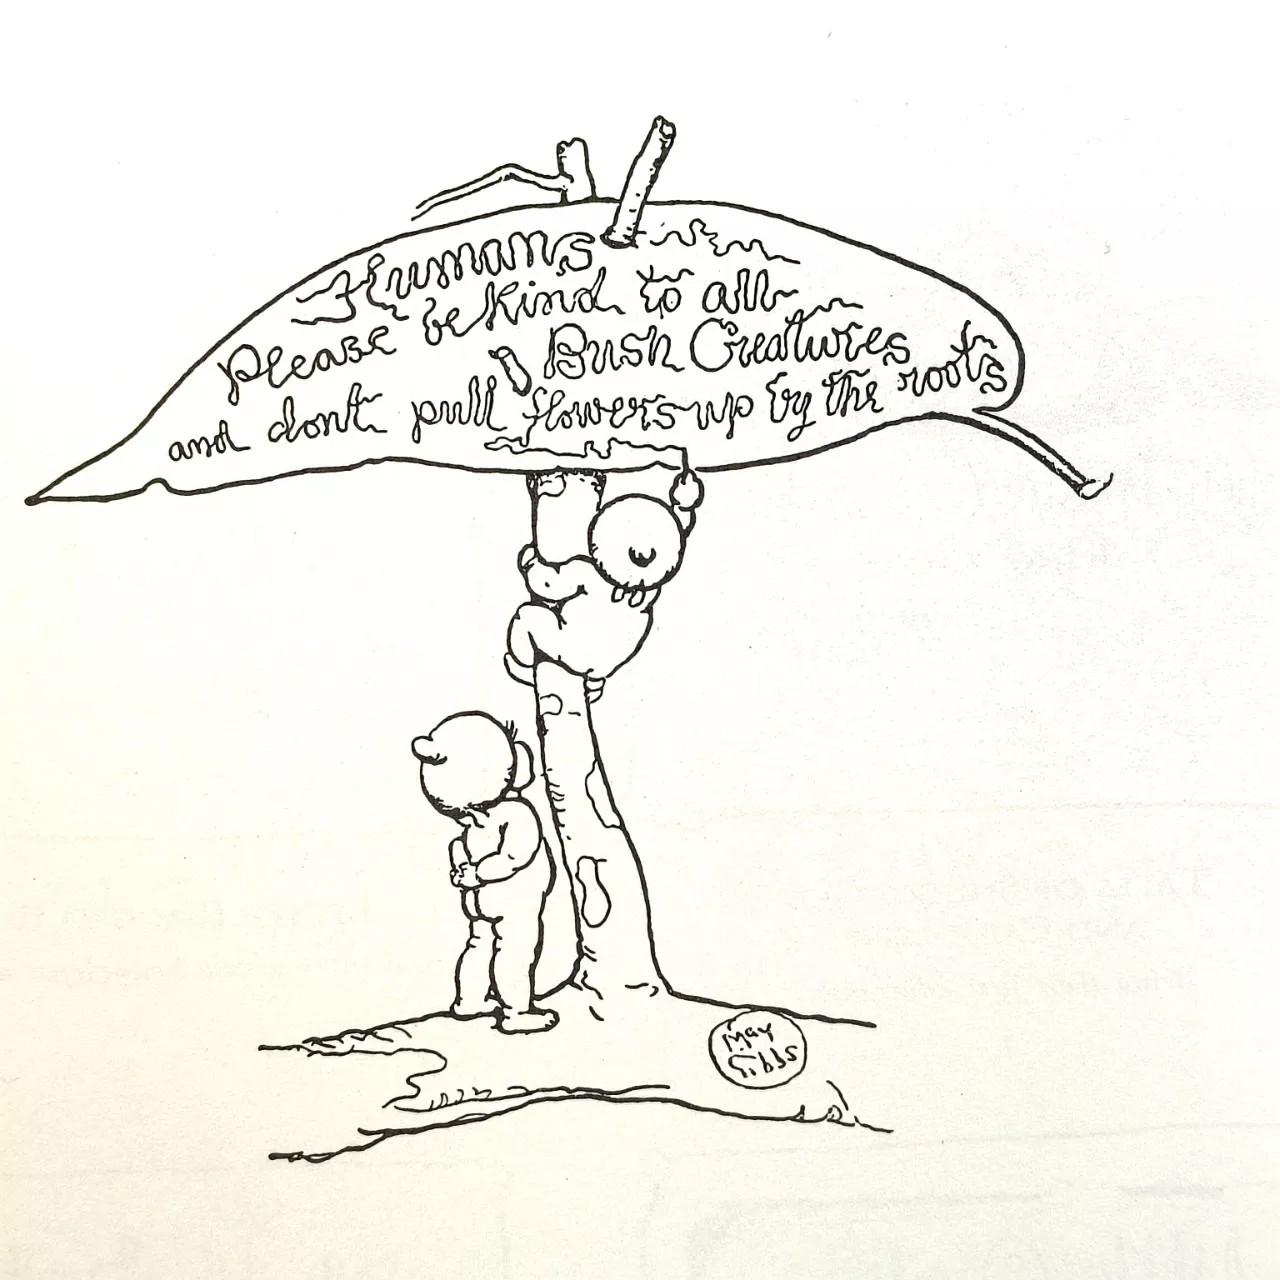 Humans
please be kind to all
Bush Creatures
and dont pull flowers up by the roots
May
Gibbs